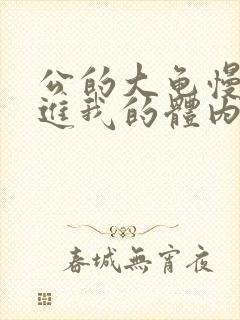 公的大龟慢
進我的體内
春城無宵夜